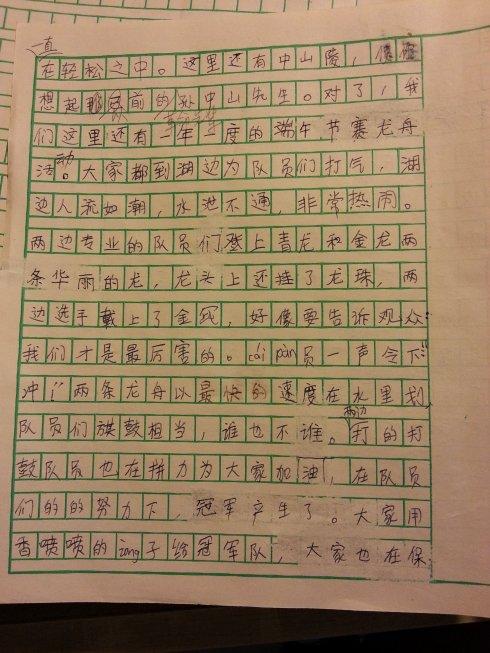 一直
在轻松之中。这里还有中山陵，
想起 以前的孙中山先生。对了，我
们这里还有一年一度的端午节赛龙舟
活动。大家都到湖边为队员们打气，湖
边人流如潮，水泄不通，非常热闹。
两边专业的队员们登上青龙和金龙两
条华丽的龙，龙头上还挂了龙珠，两
边选手戴上了金冠，好像要告诉观众：
我们才是最厉害的。cái pàn员一声令下：
冲！”两条龙舟以最快的速度在水里划，
队员们旗鼓相当，谁也不谁。两边打的打
鼓队员也在拼力为大家加油，在队员
们的的努力下，冠军产生了。大家用
香喷喷的zòng子给冠军队，大家也在保